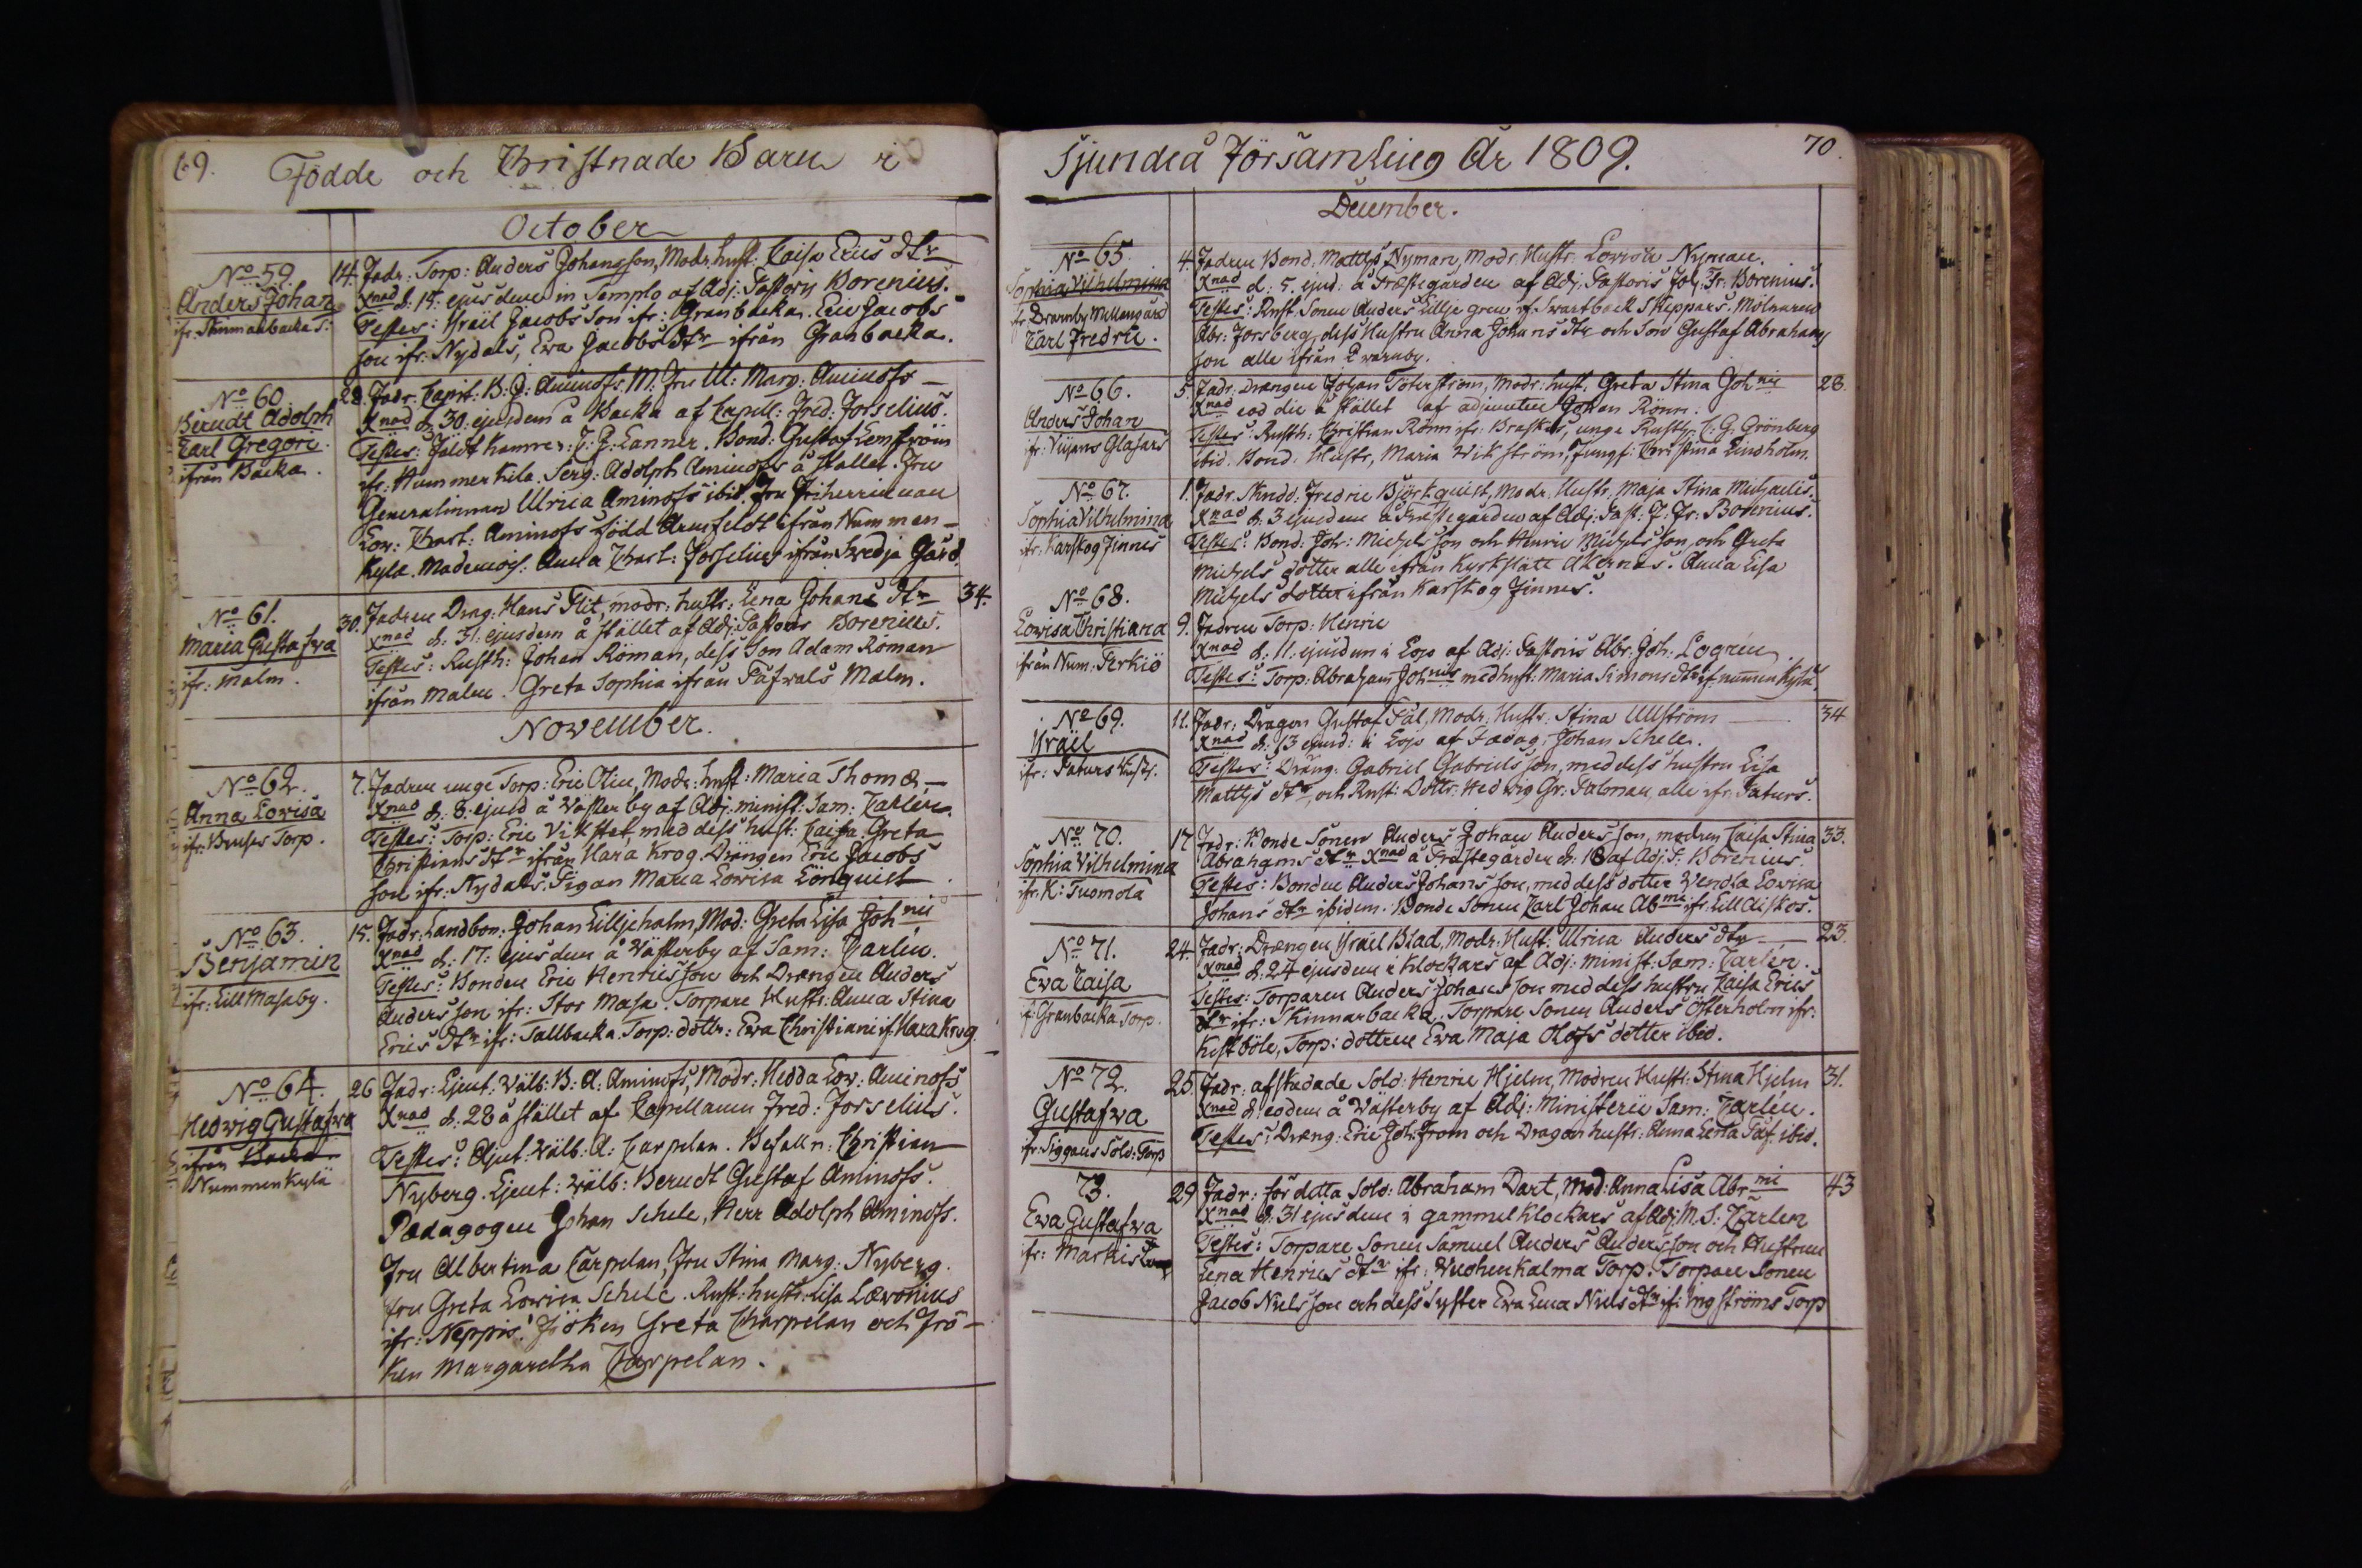 69.
Födde och Christnade Barn i
October
No 59.
Anders Johan
ifr: Skinnarbacka T:
14. Fadr: Torp: Anders Johansson, Modr. hust: Caisa Erics dtr
Xnad d. 15. ejusdem in Templo af Adj: Pastoris Borenius.
Testes: Israël Jacobs Son ifr: Granbacka. Eric Jacobs
son ifr: Nydals, Ewa Jacobs dtr ifrån Granbacka.
No 60
Berndt Adolph
Carl Gregori
ifrån Backa.
28. Fadr. Capit: B: G: Aminoff M: Fru Ul: Marg: Aminoff
Xnad d. 30. ejusdem å Backa af Capell: Fred: Forselius.
Testes: Fäldt Kamrer: J: G: Lanner. Bond: Gustaf Lemström
ifr: Hummerkila. Serg: Adolph Aminoff å stället. Fru
Generalinnan Ulrica Aminoff ibid. Fru Friherrinnan
Lov: Charl: Aminoff Född Armfeldt ifrån Nummen-
kyla. Mademois: Anna Charl: Forselius ifrån Svedja Gård.
No 61.
Maria Gustafva
ifr: Malm.
30. Fadren Drag: Hans Flit, modr: hustr: Lena Johans dtr 34.
Xnad d. 31. ejusdem å stället af Adj: Pastoris Borenius.
Testes: Rusth: Johan Röman, dess Son Adam Röman
ifrån Malm. Greta Sophia ifrån Päfvals Malm.
November.
No 62.
Anna Lovisa
ifr: Bruses Torp.
7. Fadren unge Torp: Eric Olin, Modr: hust: Maria Thomæ
Xnad d. 8. ejusd å Västerby af Adj: minist: Sam: Carlén.
Testes: Torp: Eric Vikstet med dess hust: Caisa Greta
Christians dtr ifrån Hara Krog. Drängen Eric Jacobs
son ifr: Nydals. Pigan Maria Lovisa Lönquist
No 63.
Benjamin
ifr: Lill Masaby.
15. Fadr: Landbon: Johan Lilljeholm, Mod: Greta Lisa Johnis
Xnad d. 17: ejusdem å Västerby af Sam: Carlén.
Testes: Bonden Eric Henricsson och Drängen Anders
Andersson ifr: Stor Masa. Torpare Hustr: Anna Stina
Erics dtr ifr: Tallbacka. Torp: dottr: Ewa Christiani if: Hara Krog.
No 64.
Hedvig Gustafva
ifrån Backa
Nummenkylä
26 Fadr: Ljeut: Välb: B: A: Aminoff, Modr: Hedda Lov: Aminoff
Xnad d. 28 å stället af Capellanen Fred: Forselius.
Testes: Ljut: Välb: A: Carpelan. Befalln: Christian
Nyberg. Ljeut: Välb: Berndt Gustaf Aminoff.
Pædagogen Johan Schele, Herr Adolph Aminoff.
Fru Albertina Carpelan, Fru Stina Marg: Nyberg.
Fru Greta Lovisa Schele. Rust: hustr: Lisa Lævonius
ifr: Neppis. Fröken Greta Charpelan och Frö-
ken Margaretha Carpelan.
Sjundeå Församling År 1809.
70.
December.
No 65.
Sophia Vilhelmina
fr: Qvarnby Mellangård
Carl Fredric.
4. Fadren Bond: Matths Nyman, Modr: Hustr: Lovisa Nyman.
Xnad d: 5. ejusd: å Præstegården af Adj. Pastoris Joh: Fr: Borenius.
Testes: Rust. Sonen Anders Lilljegren if. Svartback Skeppars. Mölnaren
Abr: Forsberg, dess Hustru Anna Johans dtr och Son Gustaf Abrahams
son alle ifrån Qvarnby.
No 66.
Anders Johan
ifr: Vijans Glasars
5. Fadr: Drængen Johan Söderström, Modr: hust: Greta Stina Johnis 28.
Xnad eod die å stället af adjuncten Johan Rönn.
Testes: Rusth: Christian Rönn ifr: Braskes, unge Rusth: C: G: Grönberg
ibid. Bond: Hustr, Maria Wikström, Jungf: Christina Lindholm.
No 67.
Sophia Vilhelmina
ifr: Karskog Finnes
1. Fadr. Skradd: Fredric Björkquist, Modr: Hustr: Maja Stina Michaelis.
Xnad d. 3 ejusdem å Prestegården af Adj: Past: J. Fr: Borenius.
Testes: Bond: Joh: Michelsson och Henric Michelsson, och Greta
Michels dotter alle ifrån Kyrkslätt Åkernäs. Anna Lisa
Michels dotter ifrån Karskog Finnes.
No 68.
Lovisa Christiana
ifrån Num: Perkiö
9. Fadren Torp: Henric
Xnad d. 11. ejusdem i Lojo af Adj: Pastoris Abr: Joh: Logrén.
Testes: Torp: Abraham Johnis med hust: Maria Simons dtr if: nummenkylä
No 69.
Israël
ifr: Paturs Rusth.
11. Fadr: Dragon Gustaf Pål, Modr: Hustr: Stina Ullström 34
Xnad d: 13 ejusd: i Lojo af Pædag: Johan Schele.
Testes: Dräng: Gabriel Gabrielsson, med dess hustru Lisa
Matths dtr, och Rust: Dottr: Hedvig Gr: Palman, alle ifr: Paturs.
No 70.
Sophia Vilhelmina
ifr: K: Tuomola
17 Fadr: Bonde Sonen Anders Johan Andersson, modren Caisa Stina 33.
Abrahams dtr Xnad å Præstegården d: 18 af Adj: P: Borenius.
Testes: Bonden Anders Johansson, med dess dotter Vendla Lovisa
Johans dtr ibidem. Bonde Sonen Carl Johan Abmi ifr: Lill Aiskos.
No 71.
Ewa Caisa
if: Granbacka Torp.
24. Fadr: Drængen Israël Blad, Modr: Hust: Ulrica Anders dtr 23.
Xnad d: 24 ejusdem i Klockars af Adj: minist: Sam: Carlén.
Testes: Torparen Anders Johansson med dess hustru Caisa Erics
dtr ifr: Skinnarbacka. Torpare Sonen Anders Österholm ifr:
Kestböle, Torp: dottren Ewa Maja Olofs dotter ibid.
No 72.
Gustafva
ifr: Siggans Sold: Torp
25. Fadr: afskedade Sold: Henric Hjelm, Modren Hustr: Stina Hjelm 31.
Xnad d: eodem å Västerby af Adj: Ministerii Sam: Carlén.
Testes: Dræng: Eric Joh: From och Dragon hustr: Anna Lena Päf ibid.
73.
Ewa Gustafva
ifr: Markis
29 Fadr: för detta Sold: Abraham Dart, Mod: Anna Lisa Abrmi 43
Xnad d: 31 ejusdem i gammel Klockars af Adj: M. S: Carlén
Testes: Torpare Sonen Samuel Anders Andersson och Hustrun
Lena Henrics dtr ifr: Vuohenkalma Torp: Torpare Sonen
Jacob Nielsson och dess Syster Ewa Lena Niels dtr if: Ingströms Torp